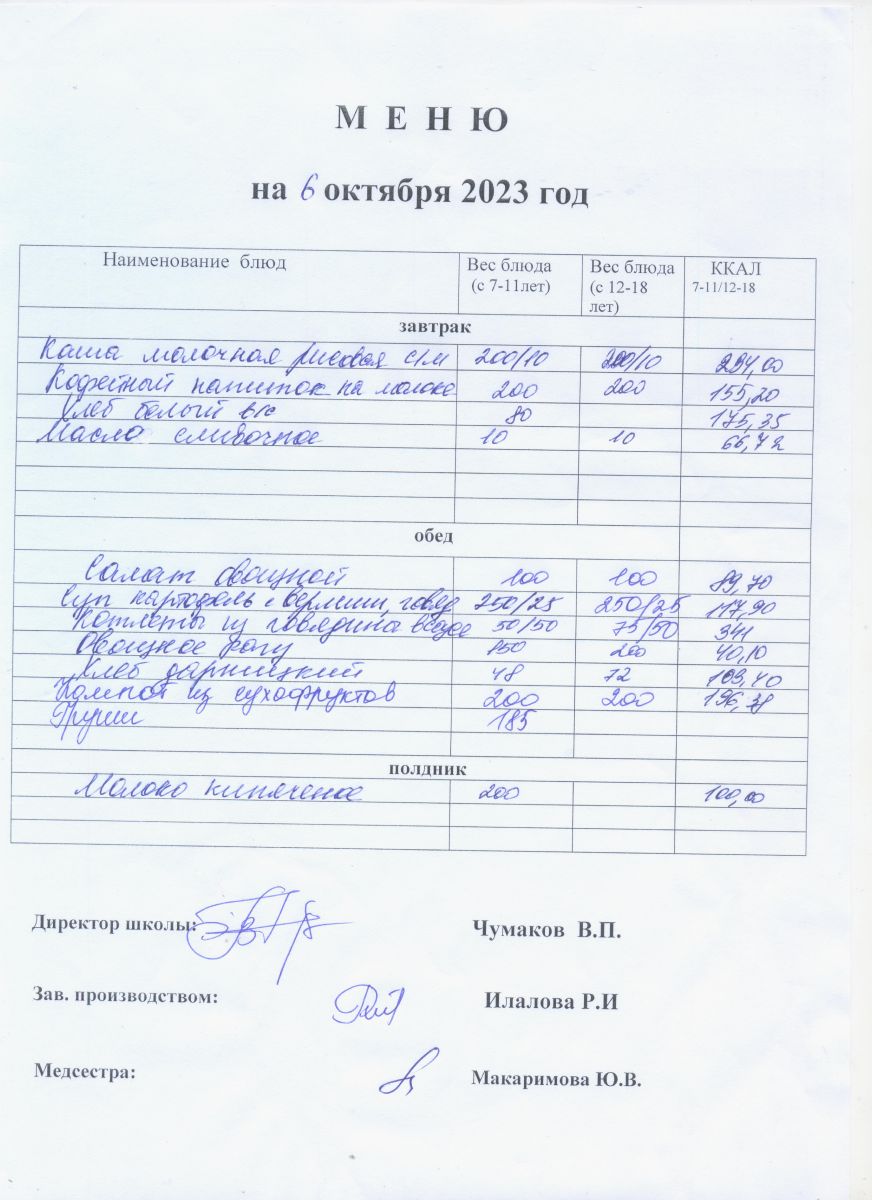 МЕНЮ
на 6 октября 2023 год
Наименование блюд Вес блюда (с 7-11лет) Вес блюда (с 12-18 лет) ККАЛ 7-11/12-18
завтрак
Каша молочная рисовая с/м 200/10 200/10 294,00
Кофейный напиток на молоке 200 200 155,20
Хлеб белый в/с 80 175,35
Масло сливочное 10 10 66,72
обед
Салат овощной 100 100 89,70
Суп картофель с вермиш, говяд 250/25 250/25 117,90
Котлеты из говядины в соусе 50/50 75/50 341
Овощное рагу 150 200 40,10
Хлеб дарницкий 48 72 103,40
Компот из сухофруктов 200 200 196,38
Груши 185
полдник
Молоко кипяченое 200 100,00
Директор школы: Чумаков В.П.
Зав. производством: Илалова Р.И
Медсестра: Макаримова Ю.В.